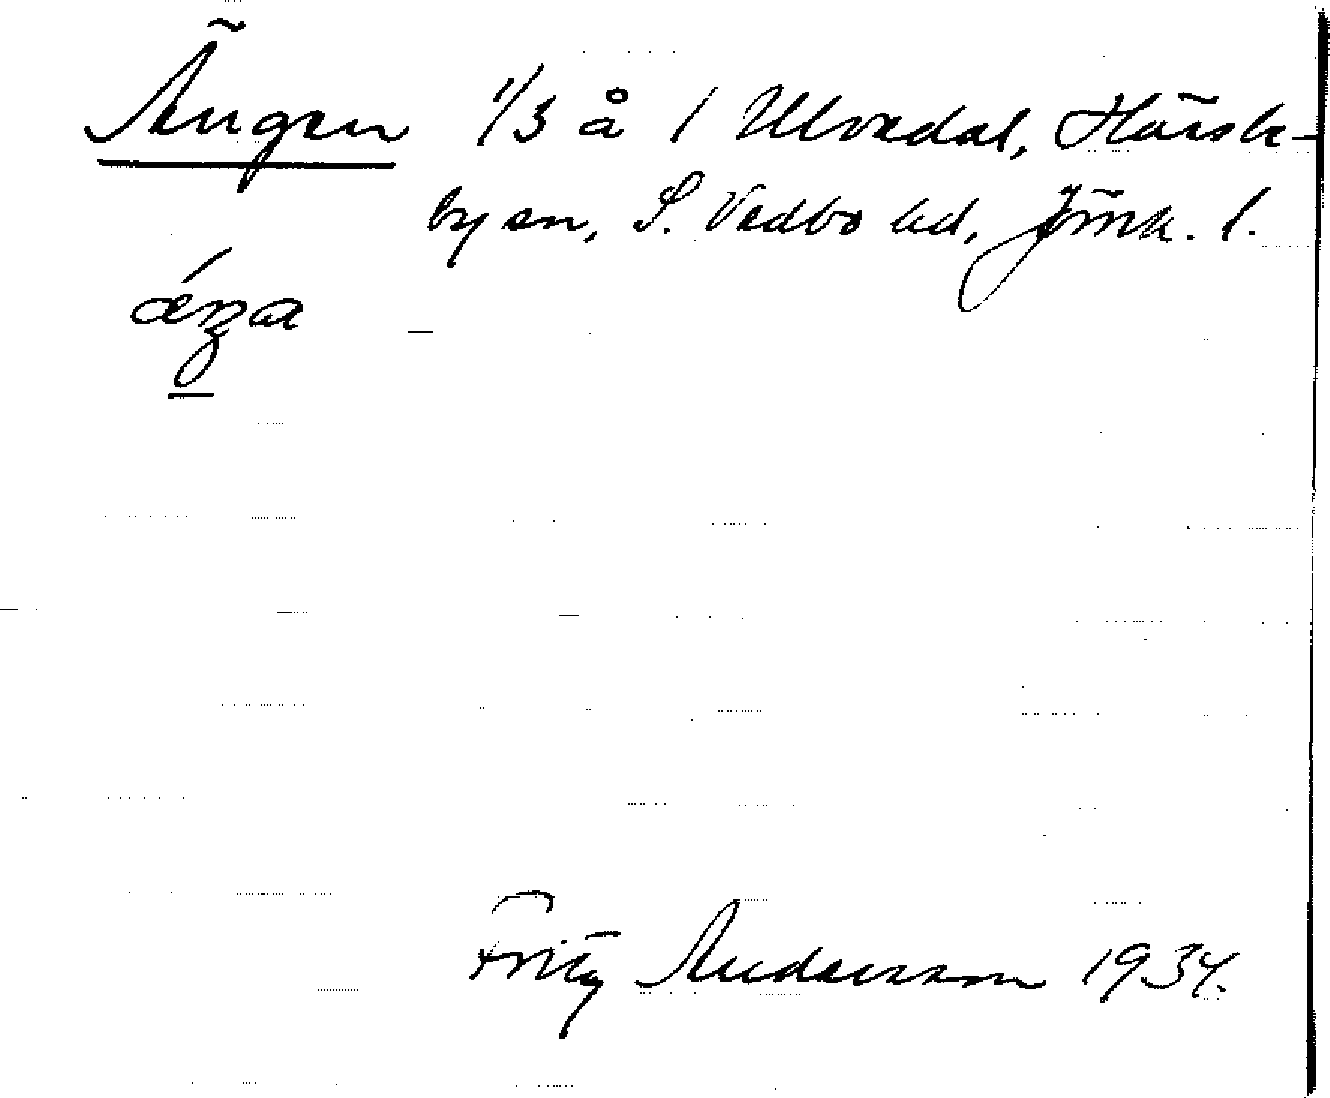 Ängen 1/3 å 1 Ulvedal, Hässle-
byen, S. Vedbo hd, Jönk. l.
Fritz Andersson 1934.